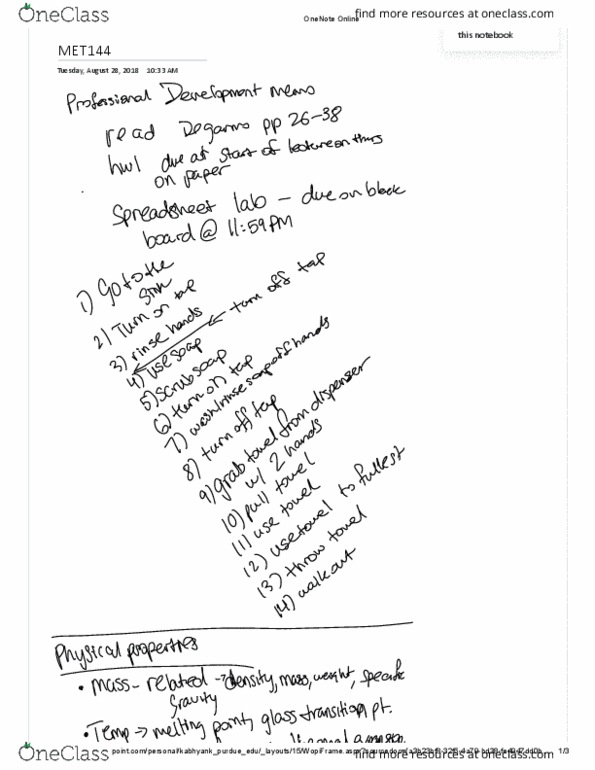 OneClass
OneNote Online
find more resources at oneclass.com
this notebook
MET144
Tuesday, August 28, 2018 10:33 AM
Professional Development memo
read Degarmo pp 26-38
hw1 due at start of lecture on thurs
on paper
Spreadsheet lab - due on black
board @ 11:59PM
1) Go to the
sink
2) Turn on tap
3) rinse hands
turn off tap
4) use soap
5) scrub soap
6) turn on tap
7) wash/rinse soap off hands
8) turn off tap
9) grab towel from dispenser
w/ 2 hands
10) pull towel
11) use towel
12) use towel to fullest
13) throw towel
14) walk out
Physical properties
• mass-related → density, mass, weight, specific
gravity
• Temp → melting point, glass transition pt.
OneClass
find more resources at oneclass.com
1/3